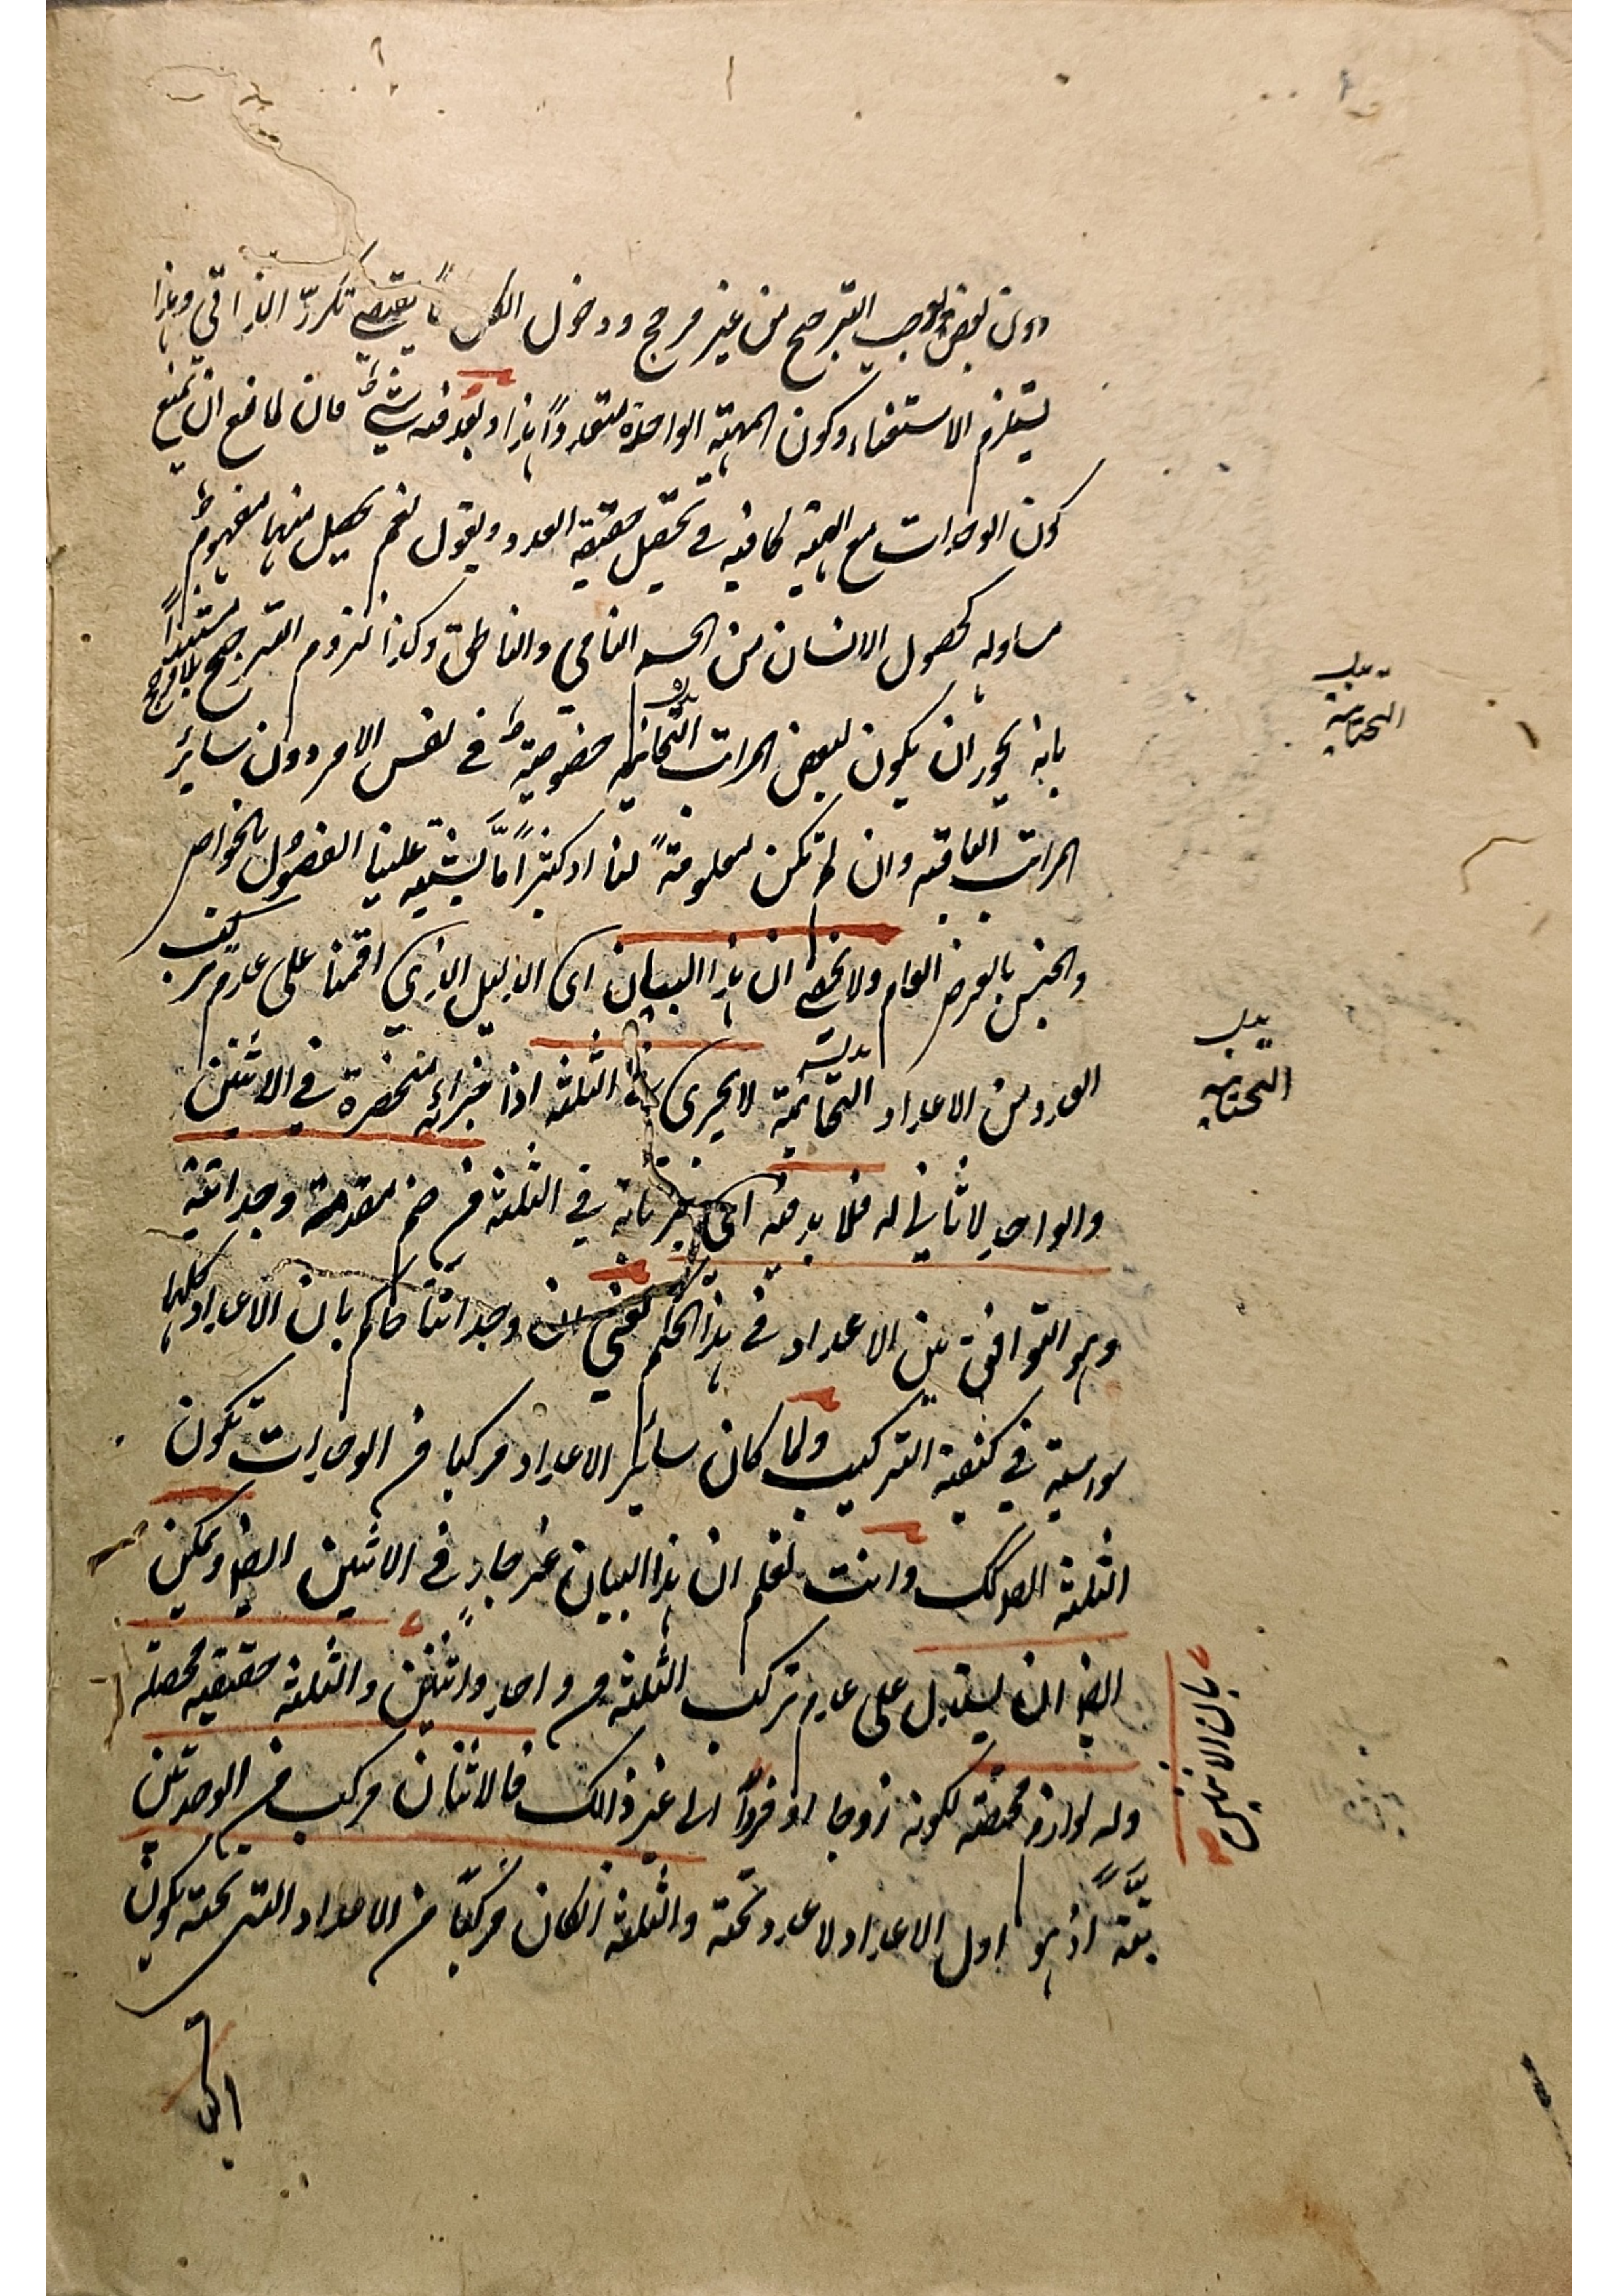 دون بعض يوجب الترجيح من غير مرجح ودخول الكل مما يقتضي تكرر الذاتي وهذا
يستلزم الاستغناء وكون المهية الواحدة متعددا هذا وبعد فيه شيئ فان لمانع ان يمنع
كون الوحدات مع الهيئة كافية في تحصيل حقيقة العدد ويقول نعم يحصل منها مفهوم
مساوله كحصول الانسان من الحساس النامي والناطق وكذا لزوم الترجيح بلا مرجح مستندا
بانه يجوز ان يكون لبعض المراتب التحانية خصوصية في نفس الامر دون سائر
المراتب الباقية وان لم تكن معلومة لنا اذ كثيرا ما يشتبه علينا الفصول بالخواص
والجنس بالعرض العام ولا يخفى ان هذا البيان اى الدليل الذي اقمنا على عدم تركيب
العدد من الاعداد التحانية لا يجرى في الثلثة اذا جزائه منحصرة في الاثنين
والواحد لا ثاني له فلا بد فيه اى جريانه في الثلثة من ضم مقدمة وجدانية
وهو التوافق بين الاعداد في هذا الحكم يعني ان وجداننا حاكم بان الاعداد كلها
سواسية في كيفية التركيب ولما كان سائر الاعداد مركبا من الوحدات تكون
الثلثة ايضا كك وانت تعلم ان هذا البيان غير جار في الاثنين ايضا ويمكن
ايضا ان يستدل على عدم تركب الثلثة من واحد واثنين والثلثة حقيقة محصلة
وله لوازم مختصة لكونه زوجا او فردا الى غير ذالك فالاثنان مركب من الوحدتين
بتة اذ هو اول الاعداد لا عدد تحته والثلثة الكان مركبا من الاعداد التي تحته يكون
بدل
التحتانية
بدل
التحتانية
بان الاثنين